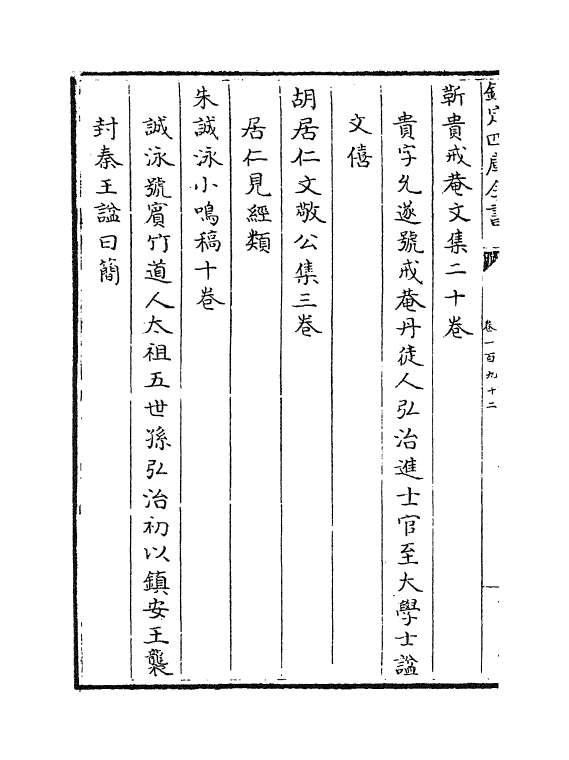 欽定四庫全書
卷一百九十二
靳貴戒菴文集二十卷
貴字允遂號戒菴丹徒人弘治進士官至大學士諡
文僖
胡居仁文敬公集三卷
居仁見經類
朱誠泳小鳴稿十卷
誠泳號賓竹道人太祖五世孫弘治初以鎮安王襲
封秦王諡曰簡